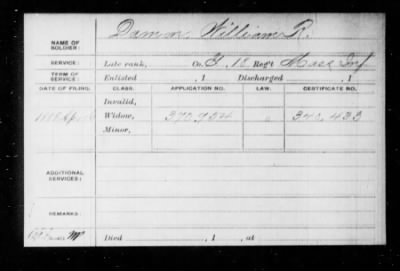 NAME OF SOLDIER: Damm, William R.
SERVICE: Late rank, Co. G, 10 Reg't Mass Inf
TERM OF SERVICE: Enlisted , 1 Discharged , 1
DATE OF FILING. CLASS. APPLICATION NO. LAW. CERTIFICATE NO.
Invalid,
Widow,
Minor,
ADDITIONAL SERVICES:
REMARKS:
Died , 1 , at